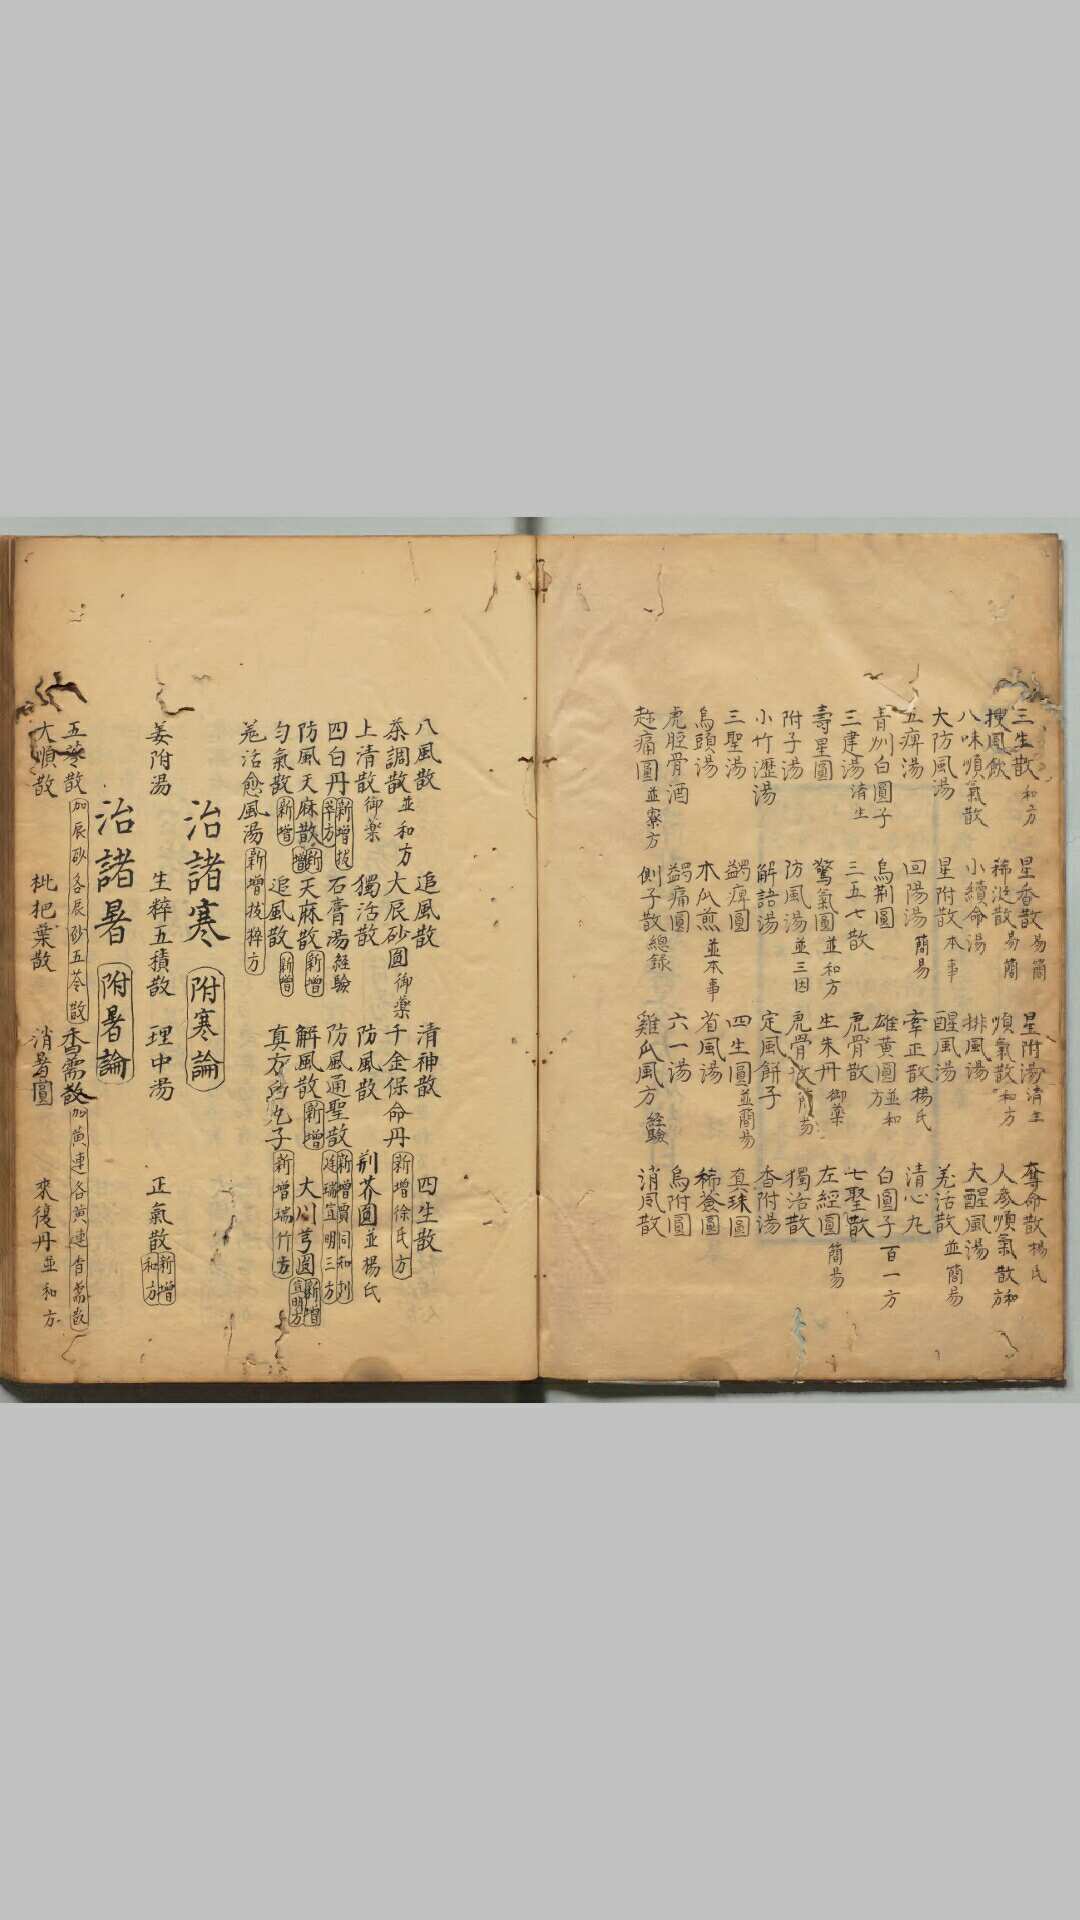 三生散 和方 星香散 易簡 星附湯 濟生 奪命散 楊氏
搜風飲 稀涎散 易簡 順氣散 和方 人參順氣散 和方
八味順氣散 小續命湯 排風湯 大醒風湯
大防風湯 星附散 本事 醒風湯 羌活散 並簡易
五痹湯 回陽湯 簡易 牽正散 楊氏 清心丸
青州白圓子 烏荊圓 雄黃圓 並和方 白圓子 百一方
三建湯 濟生 三五七散 虎骨散 七聖散
壽星圓 驚氣圓 並和方 生朱丹 御藥 左經圓 簡易
附子湯 防風湯 並三因 虎骨散 簡易 獨活散
小竹瀝湯 解語湯 定風餅子 香附湯
三聖湯 蠲痹圓 四生圓 並簡易 真珠圓
烏頭湯 木瓜煎 並本事 省風湯 稀薟圓
虎脛骨酒 蠲痛圓 六一湯 烏附圓
趁痛圓 並寮方 側子散 總錄 雞爪風方 經驗 消風散
八風散 追風散 清神散 四生散
茶調散 並和方 大辰砂圓 御藥 千金保命丹 新增徐氏方
上清散 御藥 獨活散 防風散 荊芥圓 並楊氏
四白丹 新增拔萃方 石膏湯 經驗 防風通聖散 新增賈同知刘廷瑞宣明三方
防風天麻散 新增 天麻散 新增 解風散 新增 大川芎圓 新增宣明方
勻氣散 新增 追風散 新增 真方白丸子 新增瑞竹方
羌活愈風湯 新增拔粹方
治諸寒 附寒論
姜附湯 生粹五積散 理中湯 正氣散 新增和方
治諸暑 附暑論
五苓散 加辰砂名辰砂五苓散 香薷散 加黃連名黃連香薷散
大順散 枇把葉散 消暑圓 來復丹 並和方